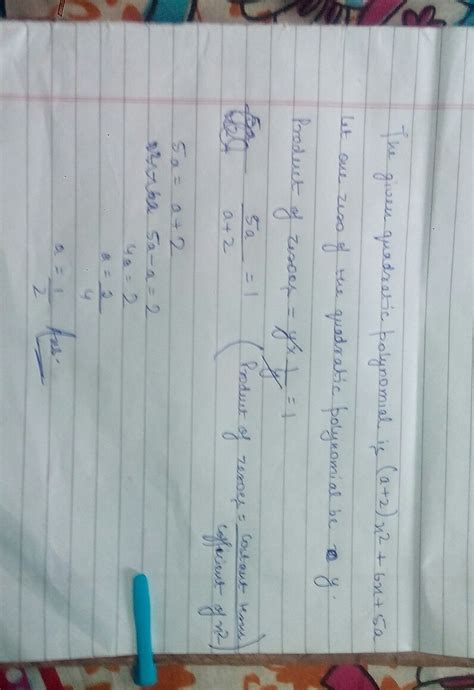 The given quadratic polynomial is (a+2)x² + 6x + 5a
let one zero of the quadratic polynomial be y.
Product of zeroes = y × 1/y = 1
5a/a+2 = 1 (Product of zeroes = constant term/coefficient of x²)
5a = a + 2
5a - a = 2
4a = 2
a = 2/4
a = 1/2 Ans.